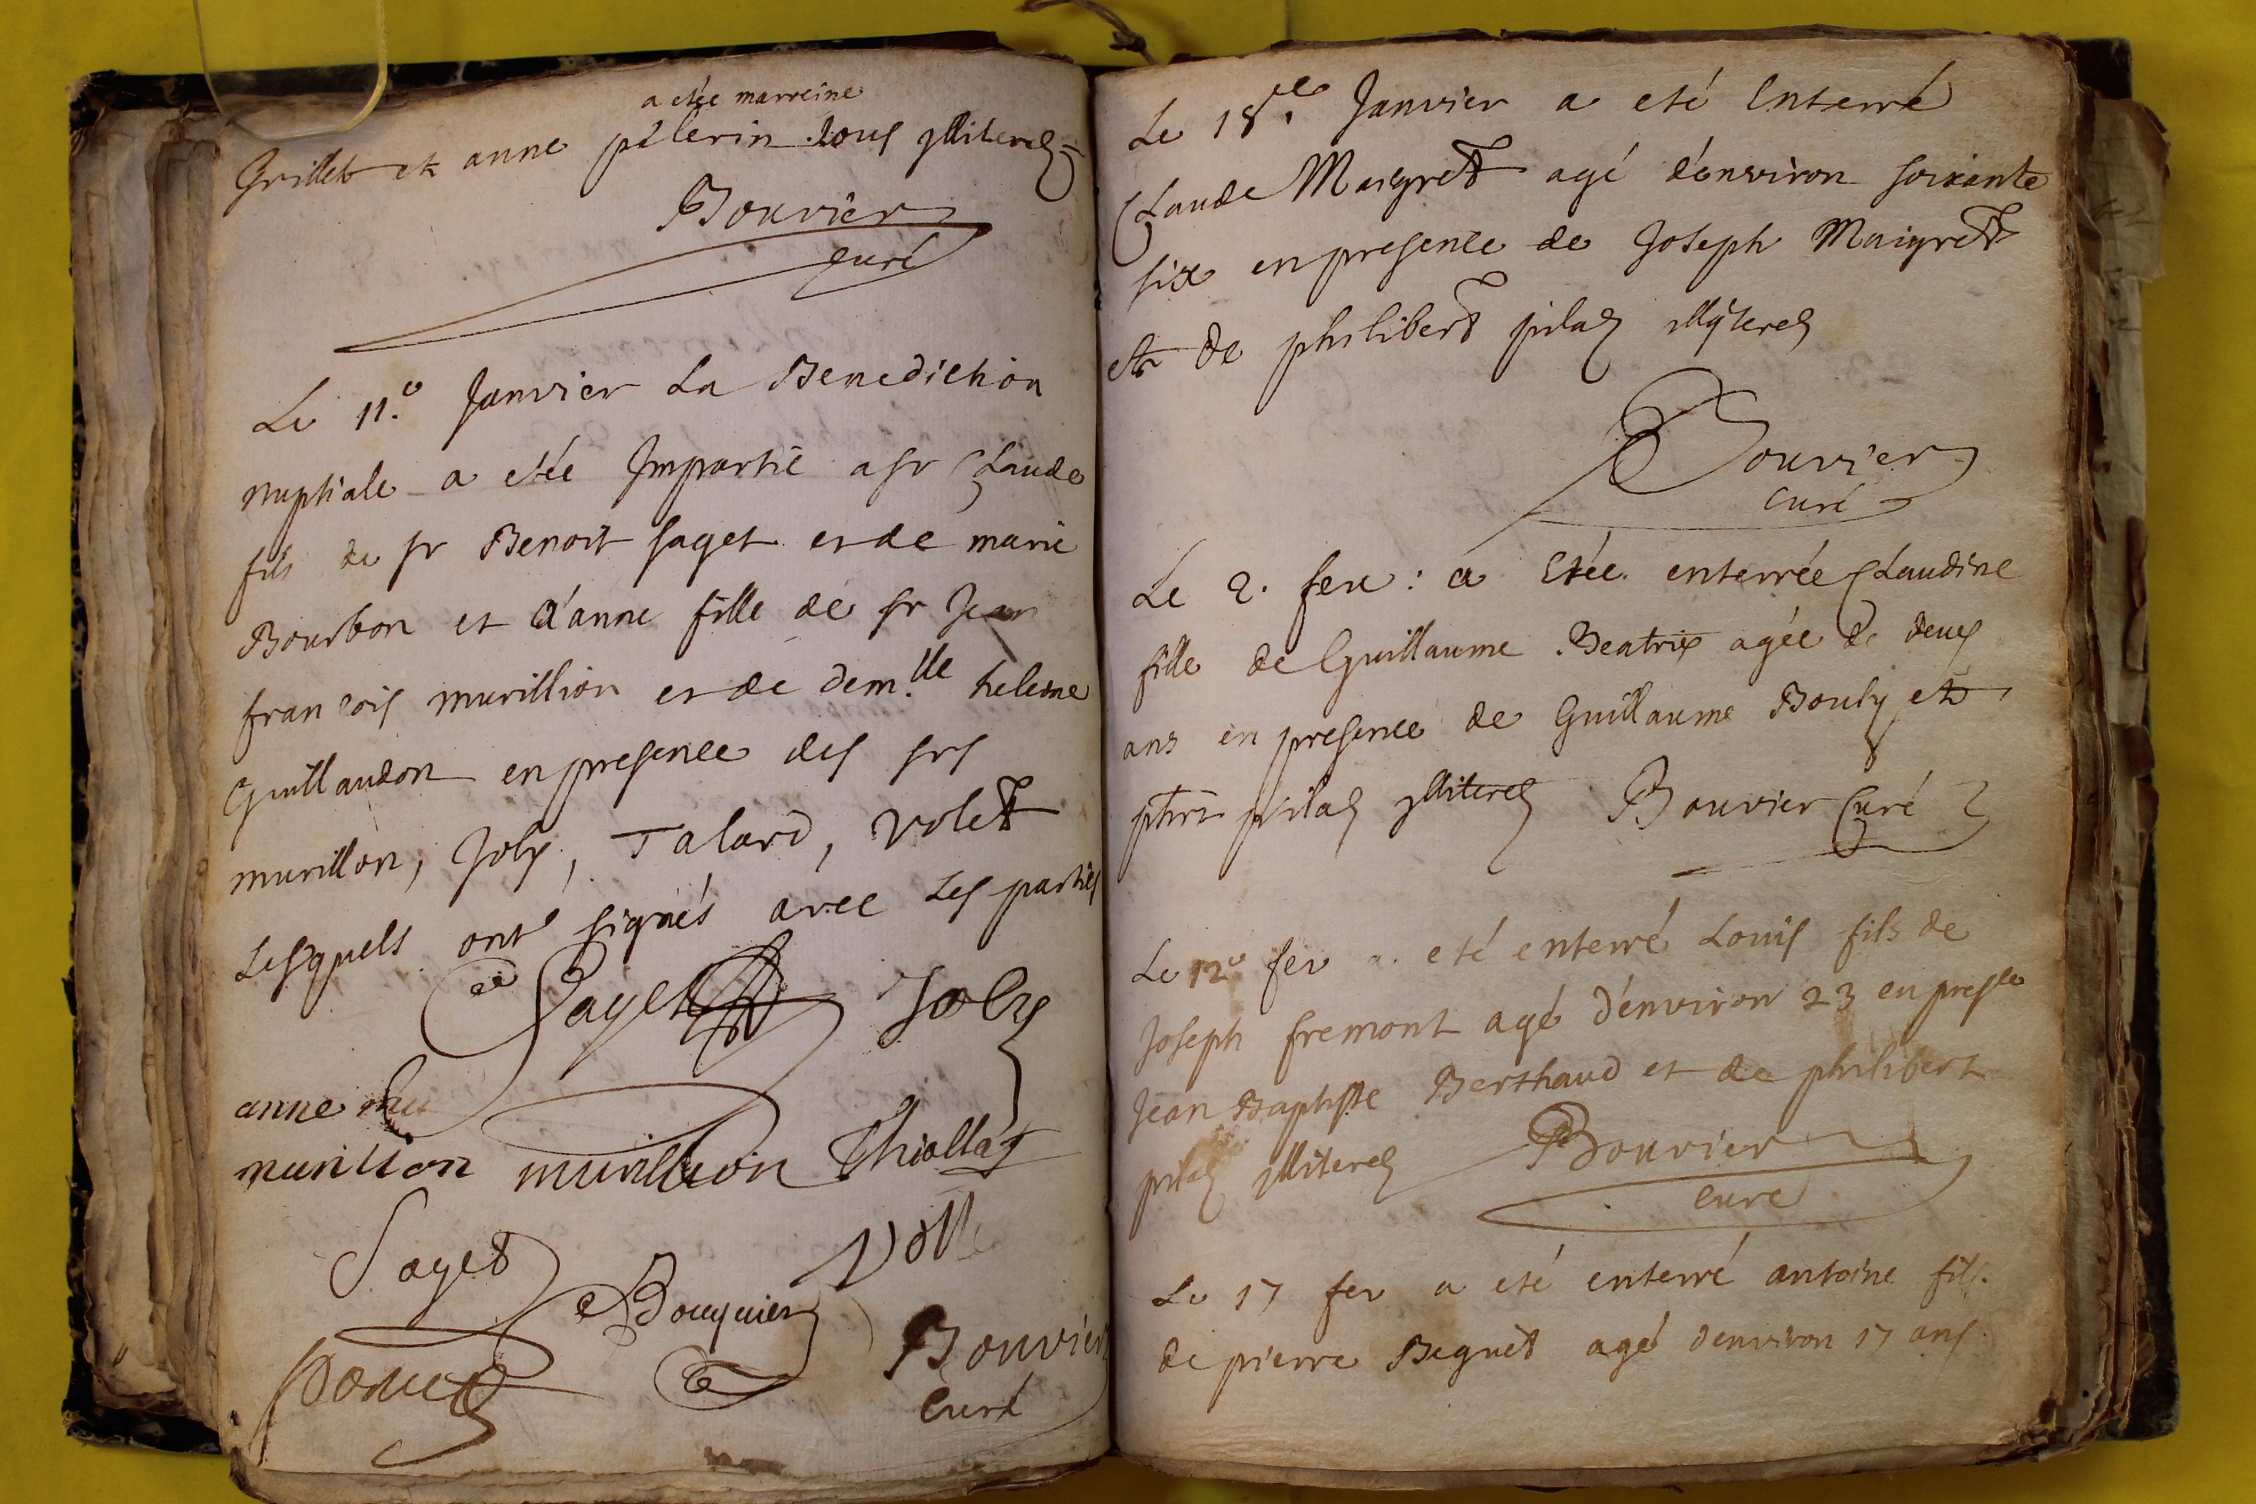 a etée marreine
Grillet et anne pèlerin tous jlliterés
Bouvier
curé
Le 11.e Janvier La Benediction
nuptiale a etée Impartie a sr Claude
fils de sr Benoit saget et de marie
Bourbon et d'anne fille de sr Jean
francois murillion et de dem.lle helesne
Guillaudon en presence des srs
murillon, Joly, Talard, Volett
Lesquels ont signés avec Les parties
Saget Joly
anne
murillion murillion Thiollay
Saget
Bouquier
Bouvier
Curé
Le 18.e Janvier a eté Enterré
Claude Maigrett agé d'environ soixante
six en presence de Joseph Maigrett
et de philibert pilas jllyterés
Bouvier
Curé
Le 2. feu : a Etée enterrée Claudine
fille de Guillaume Beatrix agée de deux
ans en presence de Guillaume Bouly et
pilas jlliterés Bouvier Curé
Le 12e fev a eté enterré Louis fils de
Joseph fremont agé d'environ 23 en presce
Jean Baptiste Berthaud et de philibert
pilas jlliterés Bouvier
curé
Le 17 fev a eté enterré antoine fils
de pierre Beguet agé d'environ 17 ans